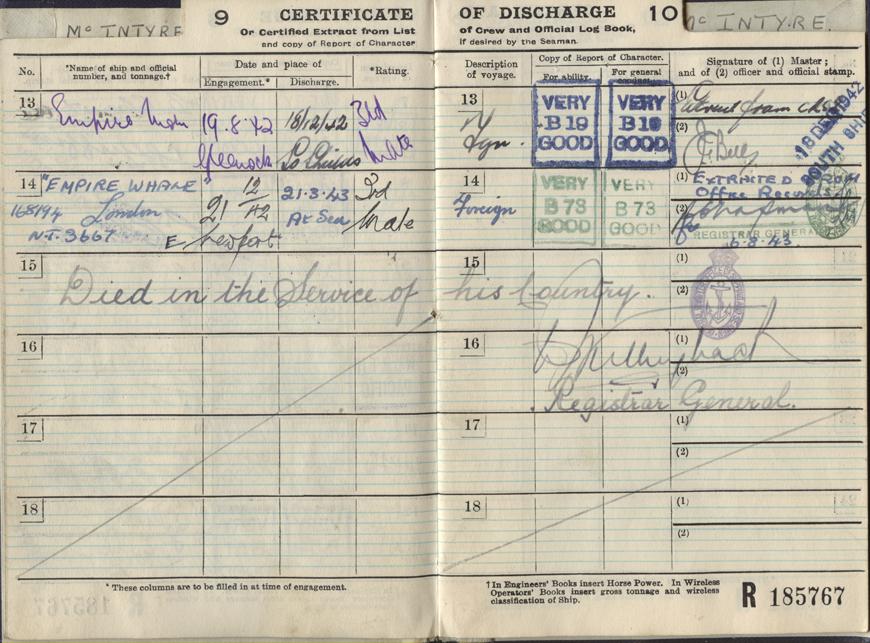 Mc INTYRE
Mc INTYRE.
9 CERTIFICATE OF DISCHARGE 10
Or Certified Extract from List of Crew and Official Log Book,
and copy of Report of Character if desired by the Seaman.
No.
*Name of ship and official number, and tonnage.†
Date and place of
Engagement.*
Discharge.
*Rating.
Description of voyage.
Copy of Report of Character.
For ability.
For general conduct.
Signature of (1) Master; and of (2) officer and official stamp.
13
Empire
19.8.42
Greenock
18/12/42
So Shields
3rd
Mate
13
Fgn.
VERY
B 19
GOOD
VERY
B 19
GOOD
(1)
(2)
J. Bell
18 DEC 1942
SOUTH
14
"EMPIRE WHALE"
168194 London
N.T. 3667
12
21 42
Newport
21.3.43
At Sea
3rd
Mate
14
Foreign
VERY
B 73
GOOD
VERY
B 73
GOOD
(1) EXTRACTED FROM
Official Records
(2)
REGISTRAR GENERAL
6.8.43
15
Died in the Service of his Country.
15
(1)
(2)
16
16
(1)
(2)
Registrar General.
17
17
(1)
(2)
18
18
(1)
(2)
* These columns are to be filled in at time of engagement.
† In Engineers' Books insert Horse Power. In Wireless
Operators' Books insert gross tonnage and wireless
classification of Ship.
R 185767